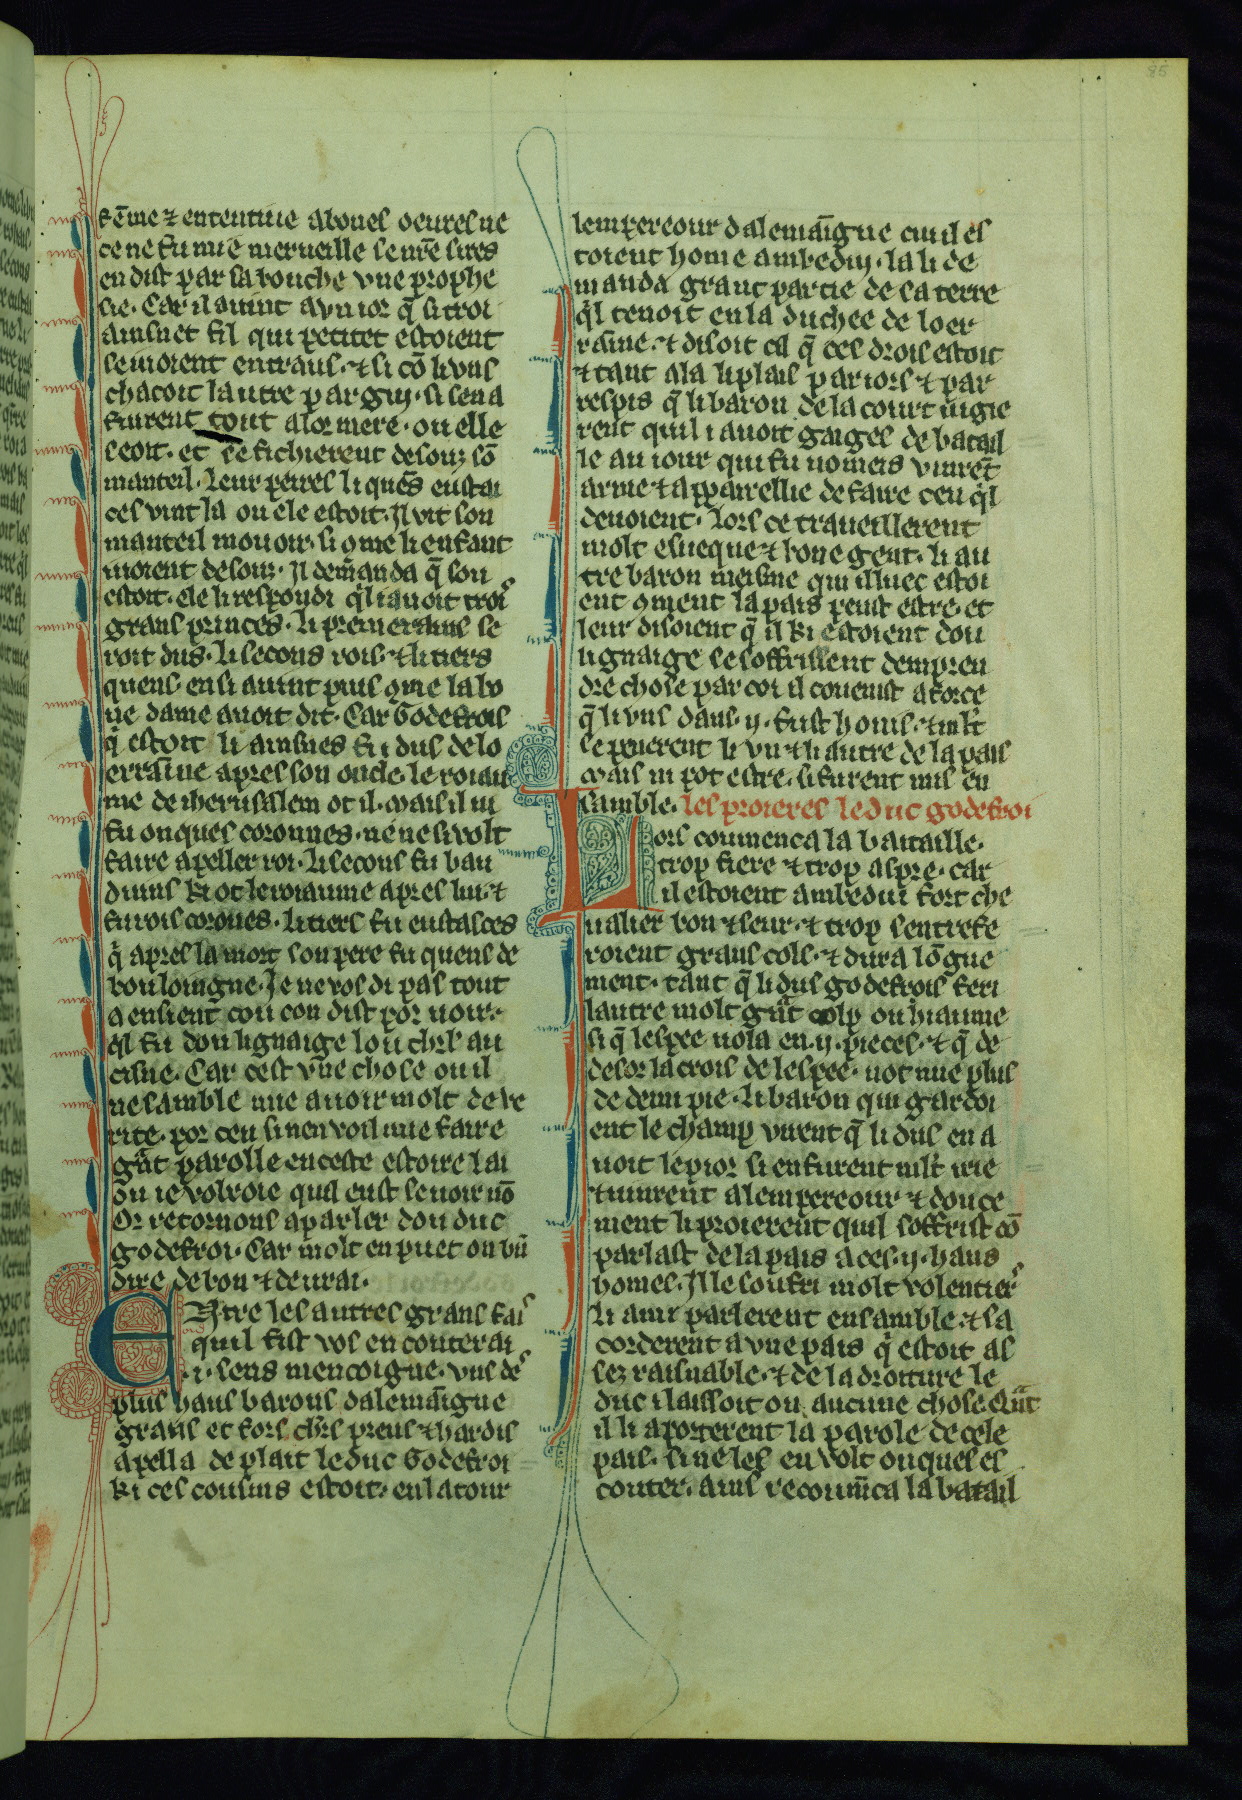 85
fēme ⁊ ententiue abones oeures ne
ce ne fu mie merueille se nr̄e sires
en dist par sa bouche vne prophe
cie. Car il auint a vn ior q̄ si troi
ainsnet fil qui petitet estoient
se iuoient entraus. ⁊ si cō li vns
chacoit lautre par giu. si sen a
furent tout a lor mere. ou elle
seoit. et se fichierent desouz sō
manteil. Leur peires li quēs eustai
ces vint la ou ele estoit. Il vit son
manteil mouoir. si ome li enfant
iuoient desouz. Il demāda q̄ sou
estoit. ele li respondi q̄l i auoit trois
grans princes. li premerains se
roit dus. li secons rois. ⁊ li tiers
quens. ensi auint puis ꝯme la bo
ne dame auoit dit. Car Godefrois
q̄ estoit li ainsnes fu dus de lo
erraīne apres son oncle. le roiau
me de iherusalem ot il. mais il ni
fu onques coronnes. ne ne si volt
faire apeller roi. li secons fu bau
duins ki ot le roiaume apres lui. ⁊
fu rois coroūes. li tiers fu eustasces
q̄ apres la mort son pere fu quens de
bouloingne. Je ne vos di pas tout
a ensient cou con dist por voir.
q̄l fu dou lignaige lou chl'r au
cisne. Car cest vne chose ou il
ne samble mie auoir molt de ve
rite. por ceu si nen voil mie faire
gāt parolle en ceste estoire lai
ou ie volroie qual eust se uoir nō
Or retornons a parler dou duc
godefroi. Car molt en puet on bn̄
dire de bon ⁊ de urai.
Entre les autres grans fais
quil fist vos en conterai
.i. sens mencoigne. vns des
plus haus barons dalemāigne
grans et fors chr̄s preus ⁊ hardis
apella de plait le duc Godefroi
ki ces cousins estoit. en la cour
lempereour dalemāigne cui il es
toient home ambedui. la li de
manda grant partie de sa terre
q̄l tenoit en la duchee de loer
raīne. ⁊ disoit cil q̄ ces drois estoit
⁊ tant ala li plais par iors ⁊ par
respis q̄ li baron de la court iugie
rent quil i auoit gaiges de batail
le au iour qui fu nomeis vinrēt
arme ⁊ apparellie de faire ceu q̄l
deuoient. Lors ce traueillerent
molt esueque ⁊ bone gent. li au
tre baron meisme qui illuec estoi
ent ꝯment la pais peust estre. et
leur disoient q̄ il ki estoient dou
lignaige se soffrissent demp̄ren
dre chose par coi il couenist a force
q̄ li vns daus .ij. fust honis. ⁊ mlt
se penerent li vn ⁊ li autre de la pais
mais ni pot estre. si furent mis en
samble. Les proieres le duc godefroi
Lors commenca la bataille.
trop fiere ⁊ trop aspre. car
il estoient ambedui fort che
ualier bon ⁊ seur. ⁊ trop sentrefe
roient grans cols. ⁊ dura lōgue
ment. tant q̄ li dus godefrois feri
lautre molt gāt colp ou hiaume
si q̄ lespee uola en .ij. pieces. ⁊ q̄ de
desor la crois de lespee. not mie plus
de demi pie. li baron qui gardoi
ent le champ virent q̄ li dus en a
uoit le pior si en furent mlt irie
⁊ vinrent a lempereour ⁊ douce
ment li proierent quil soffrist cō
parlast de la pais a ces .ij. haus
homes. Il le soufri molt volentiers
li ami parlerent ensamble ⁊ sa
corderent a vne pais q̄ estoit as
sez raisnable. ⁊ de la droiture le
duc i laissoit on aucune chose. Qāt
il li aporterent la parole de cele
pais. si ne les en volt onques es
couter. ains recoumēca la batail